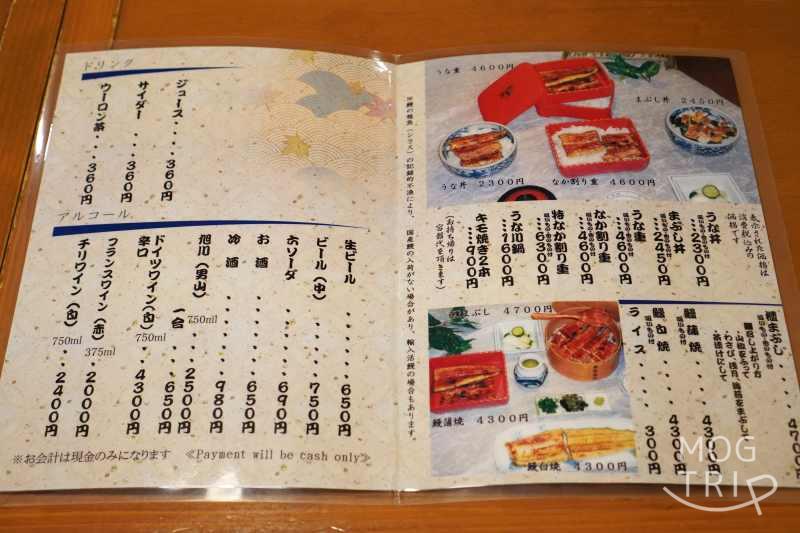 ドリンク
ジュース・・・360円
サイダー・・・360円
ウーロン茶・・・360円
アルコール
生ビール・・・・・・650円
ビール(中)・・・・750円
お酒・・・・・・650円
冷酒・・・・・980円
旭川(男山) 750ml 2500円
一合 650円
ドイツワイン(白)
辛口 750ml 4300円
フランスワイン(赤) 375ml 2000円
チリワイン(白) 750ml 2400円
※お会計は現金のみになります ≪Payment will be cash only≫
国産鰻の入荷がない場合があり、輸入活鰻の場合もあります。
うな重 4600円
まぶし丼 2450円
うな丼 2300円
なか割り重 4600円
表示された価格は
消費税込みの
価格です
うな丼
・・2300円
まぶし丼
・・2450円
うな重
・・4600円
なか割り重
・・4600円
特なか割り重
・・6300円
うな川鍋
・・1600円
キモ焼き2本
・・900円
(お持ち帰りは
容器代を頂きます)
櫃まぶし
鰻蒲焼
鰻白焼
ライス 300円
4700円
鰻蒲焼 4300円
鰻白焼 4300円
MOG
TRIP